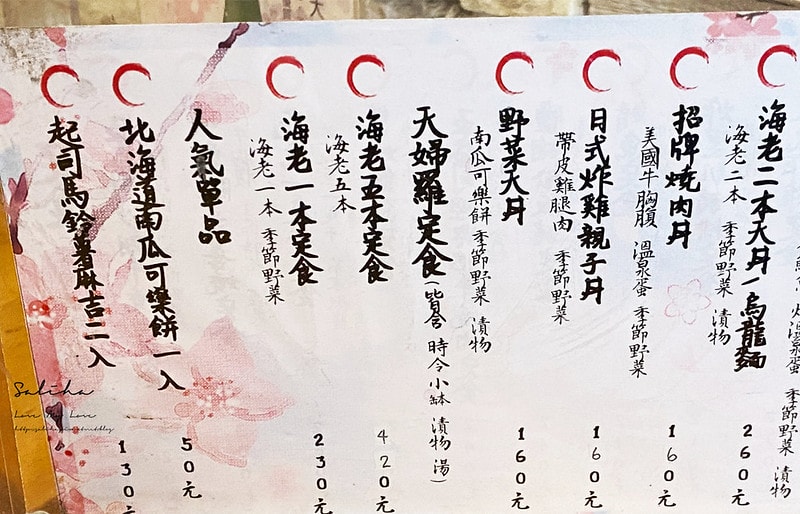 溫泉蛋 季節野菜 漬物
海老二本天丼/烏龍麵
海老二本 季節野菜 漬物
260元
招牌燒肉丼
美國牛胸腹 溫泉蛋 季節野菜
160元
日式炸雞親子丼
帶皮雞腿肉 季節野菜
160元
野菜天丼
南瓜可樂餅 季節野菜 漬物
160元
天婦羅定食(皆含 時令小缽 漬物 湯)
海老五本定食
海老五本
420元
海老一本定食
海老一本 季節野菜
230元
人氣單品
北海道南瓜可樂餅一入
50元
起司馬鈴薯麻吉二入
130元
Saliha